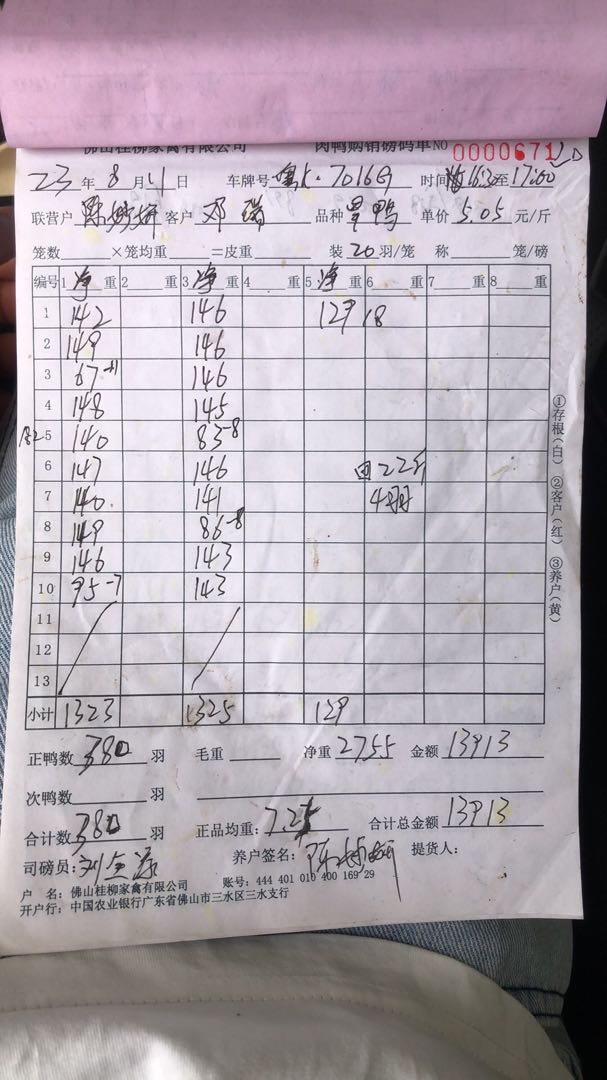 佛山桂柳家禽有限公司 肉鸭购销磅码单 NO 0000671
23 年 8 月 21 日 车牌号 粤K·7016G 时间 16:30 至 17:00
联营户 客户 邓瑞 品种 鸭 单价 5.05 元/斤
笼数 ×笼均重 =皮重 装 20 羽/笼 称 笼/磅
编号 1 净 重 2 重 3 净 重 4 重 5 净 重 6 重 7 重 8 重
1 142 146 129 18
2 149 146
3 67 146
4 148 145
5 140 83-8
6 147 146 22斤
7 140 141 4羽
8 149 86-8
9 146 143
10 95-7 143
11
12
13
小计 1323 1325 129
正鸭数 380 羽 毛重 净重 2755 金额 13913
次鸭数 羽
合计数 380 羽 正品均重: 7.25 合计总金额 13913
司磅员: 刘 养户签名: 提货人:
户 名: 佛山桂柳家禽有限公司 账号: 444 401 010 400 169 29
开户行: 中国农业银行广东省佛山市三水区三水支行
①存根(白) ②客户(红) ③养户(黄)